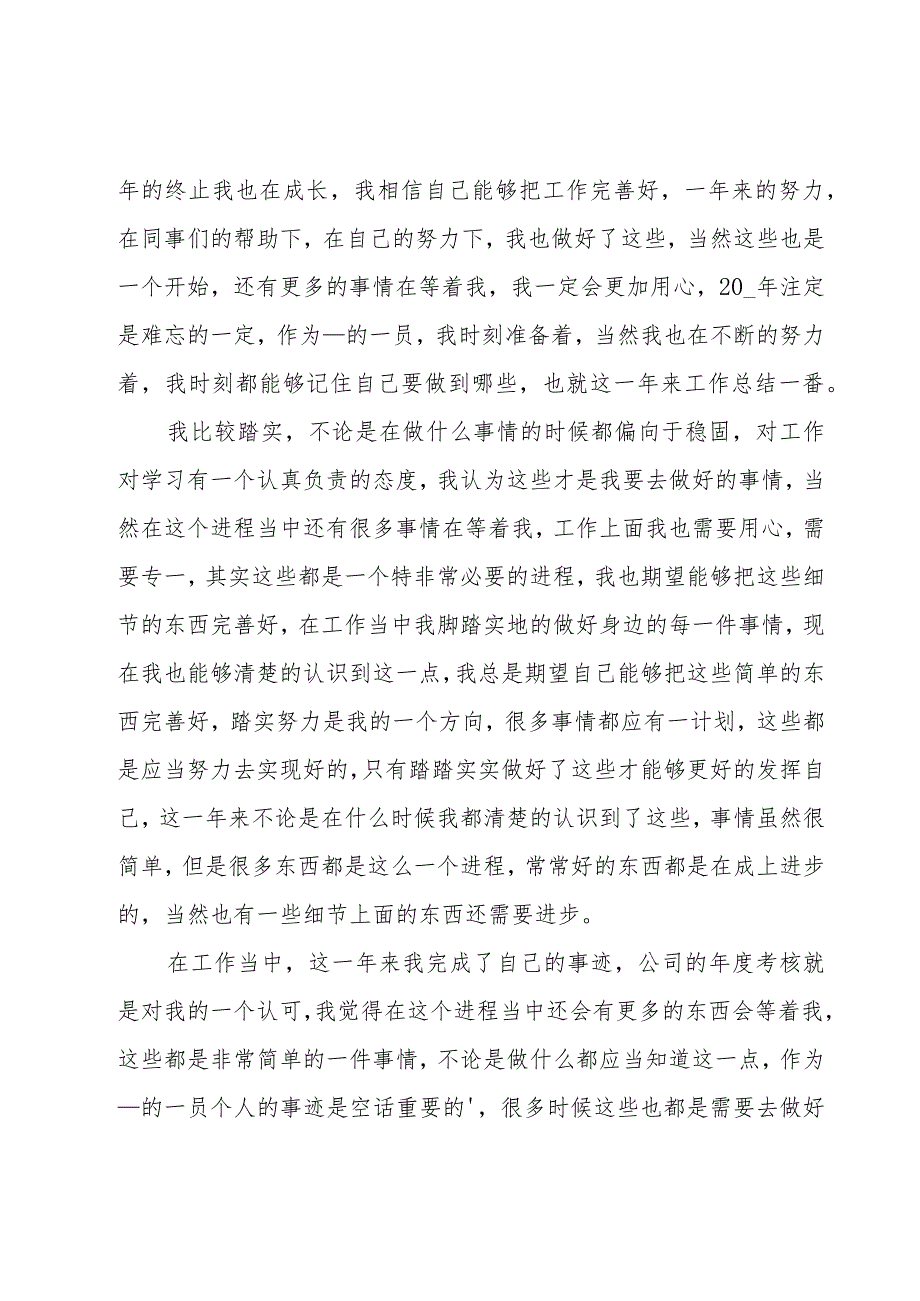 年的终止我也在成长，我相信自己能够把工作完善好，一年来的努力，
在同事们的帮助下，在自己的努力下，我也做好了这些，当然这些也是
一个开始，还有更多的事情在等着我，我一定会更加用心，20_年注定
是难忘的一定，作为—的一员，我时刻准备着，当然我也在不断的努力
着，我时刻都能够记住自己要做到哪些，也就这一年来工作总结一番。
我比较踏实，不论是在做什么事情的时候都偏向于稳固，对工作
对学习有一个认真负责的态度，我认为这些才是我要去做好的事情，当
然在这个进程当中还有很多事情在等着我，工作上面我也需要用心，需
要专一，其实这些都是一个特非常必要的进程，我也期望能够把这些细
节的东西完善好，在工作当中我脚踏实地的做好身边的每一件事情，现
在我也能够清楚的认识到这一点，我总是期望自己能够把这些简单的东
西完善好，踏实努力是我的一个方向，很多事情都应有一计划，这些都
是应当努力去实现好的，只有踏踏实实做好了这些才能够更好的发挥自
己，这一年来不论是在什么时候我都清楚的认识到了这些，事情虽然很
简单，但是很多东西都是这么一个进程，常常好的东西都是在成上进步
的，当然也有一些细节上面的东西还需要进步。
在工作当中，这一年来我完成了自己的事迹，公司的年度考核就
是对我的一个认可，我觉得在这个进程当中还会有更多的东西会等着我，
这些都是非常简单的一件事情，不论是做什么都应当知道这一点，作为
—的一员个人的事迹是空话重要的'，很多时候这些也都是需要去做好